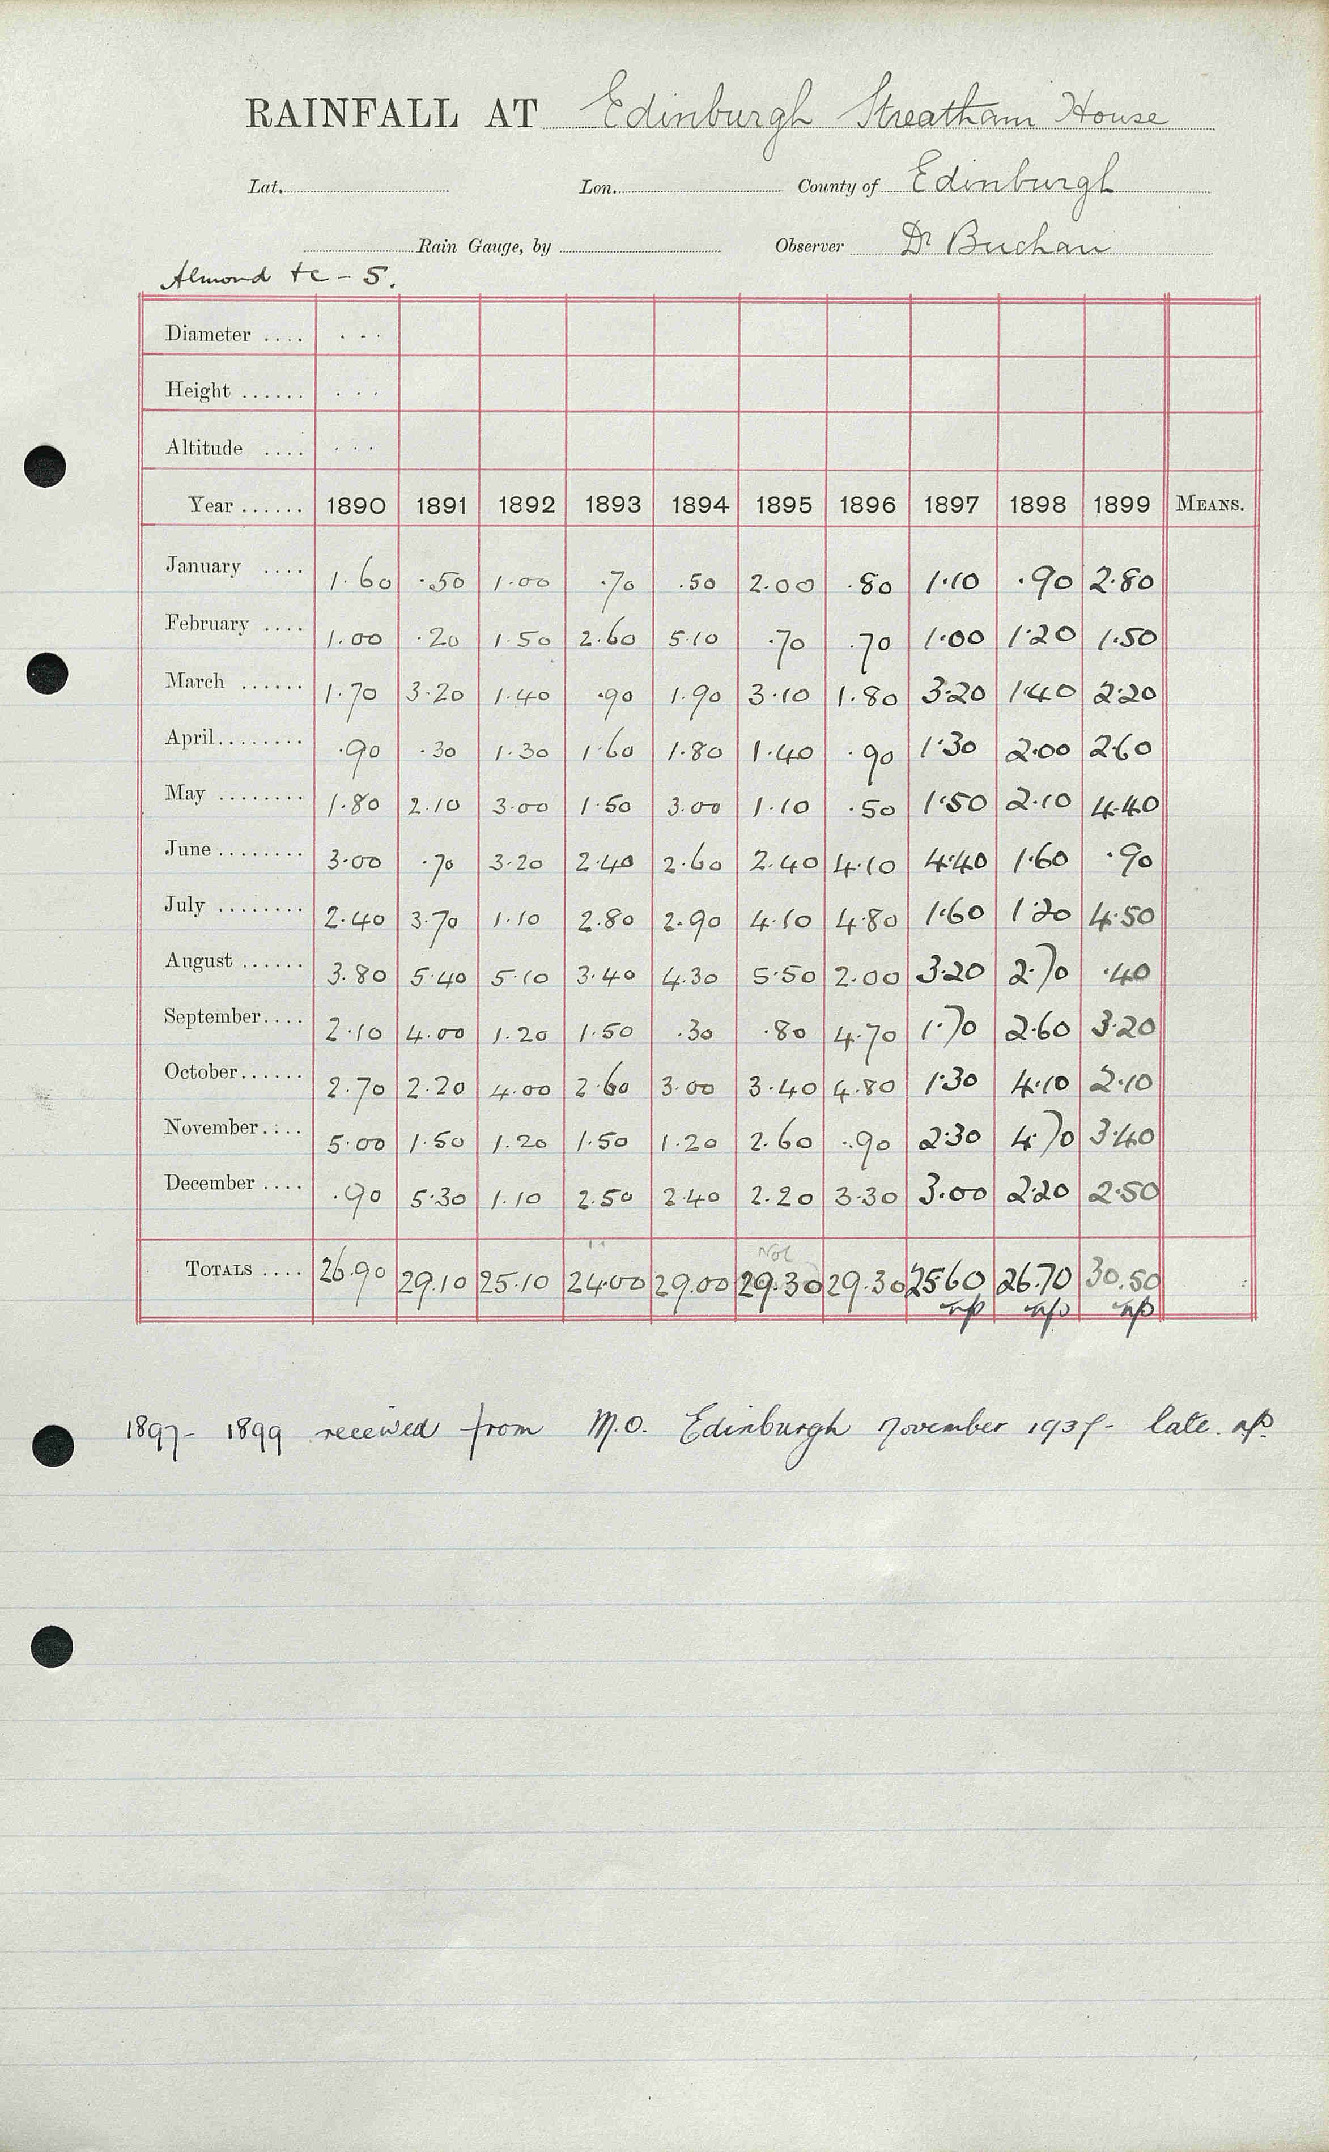 RAINFALL AT Edinburgh Streatham House
Lat. Lon. County of Edinburgh
Rain Gauge, by Observer Dr Buchan
Almond &c - 5.
Diameter .... ...
Height ...... ...
Altitude .... ...
Year ...... 1890 1891 1892 1893 1894 1895 1896 1897 1898 1899 MEANS.
January .... 1.60 .50 1.00 .70 .50 2.00 .80 1.10 .90 2.80
February .... 1.00 .20 1.50 2.60 5.10 .70 .70 1.00 1.20 1.50
March ...... 1.70 3.20 1.40 .90 1.90 3.10 1.80 3.20 1.40 2.20
April........ .90 .30 1.30 1.60 1.80 1.40 .90 1.30 2.00 2.60
May ........ 1.80 2.10 3.00 1.50 3.00 1.10 .50 1.50 2.10 4.40
June ........ 3.00 .70 3.20 2.40 2.60 2.40 4.10 4.40 1.60 .90
July ........ 2.40 3.70 1.10 2.80 2.90 4.10 4.80 1.60 1.20 4.50
August ...... 3.80 5.40 5.10 3.40 4.30 5.50 2.00 3.20 2.70 .40
September.... 2.10 4.00 1.20 1.50 .30 .80 4.70 1.70 2.60 3.20
October...... 2.70 2.20 4.00 2.60 3.00 3.40 4.80 1.30 4.10 2.10
November.... 5.00 1.50 1.20 1.50 1.20 2.60 .90 2.30 4.70 3.40
December .... .90 5.30 1.10 2.50 2.40 2.20 3.30 3.00 2.20 2.50
TOTALS .... 26.90 29.10 25.10 24.00 29.00 29.30 29.30 25.60 26.70 30.50
1897 - 1899 received from M.O. Edinburgh November 1937 - late.